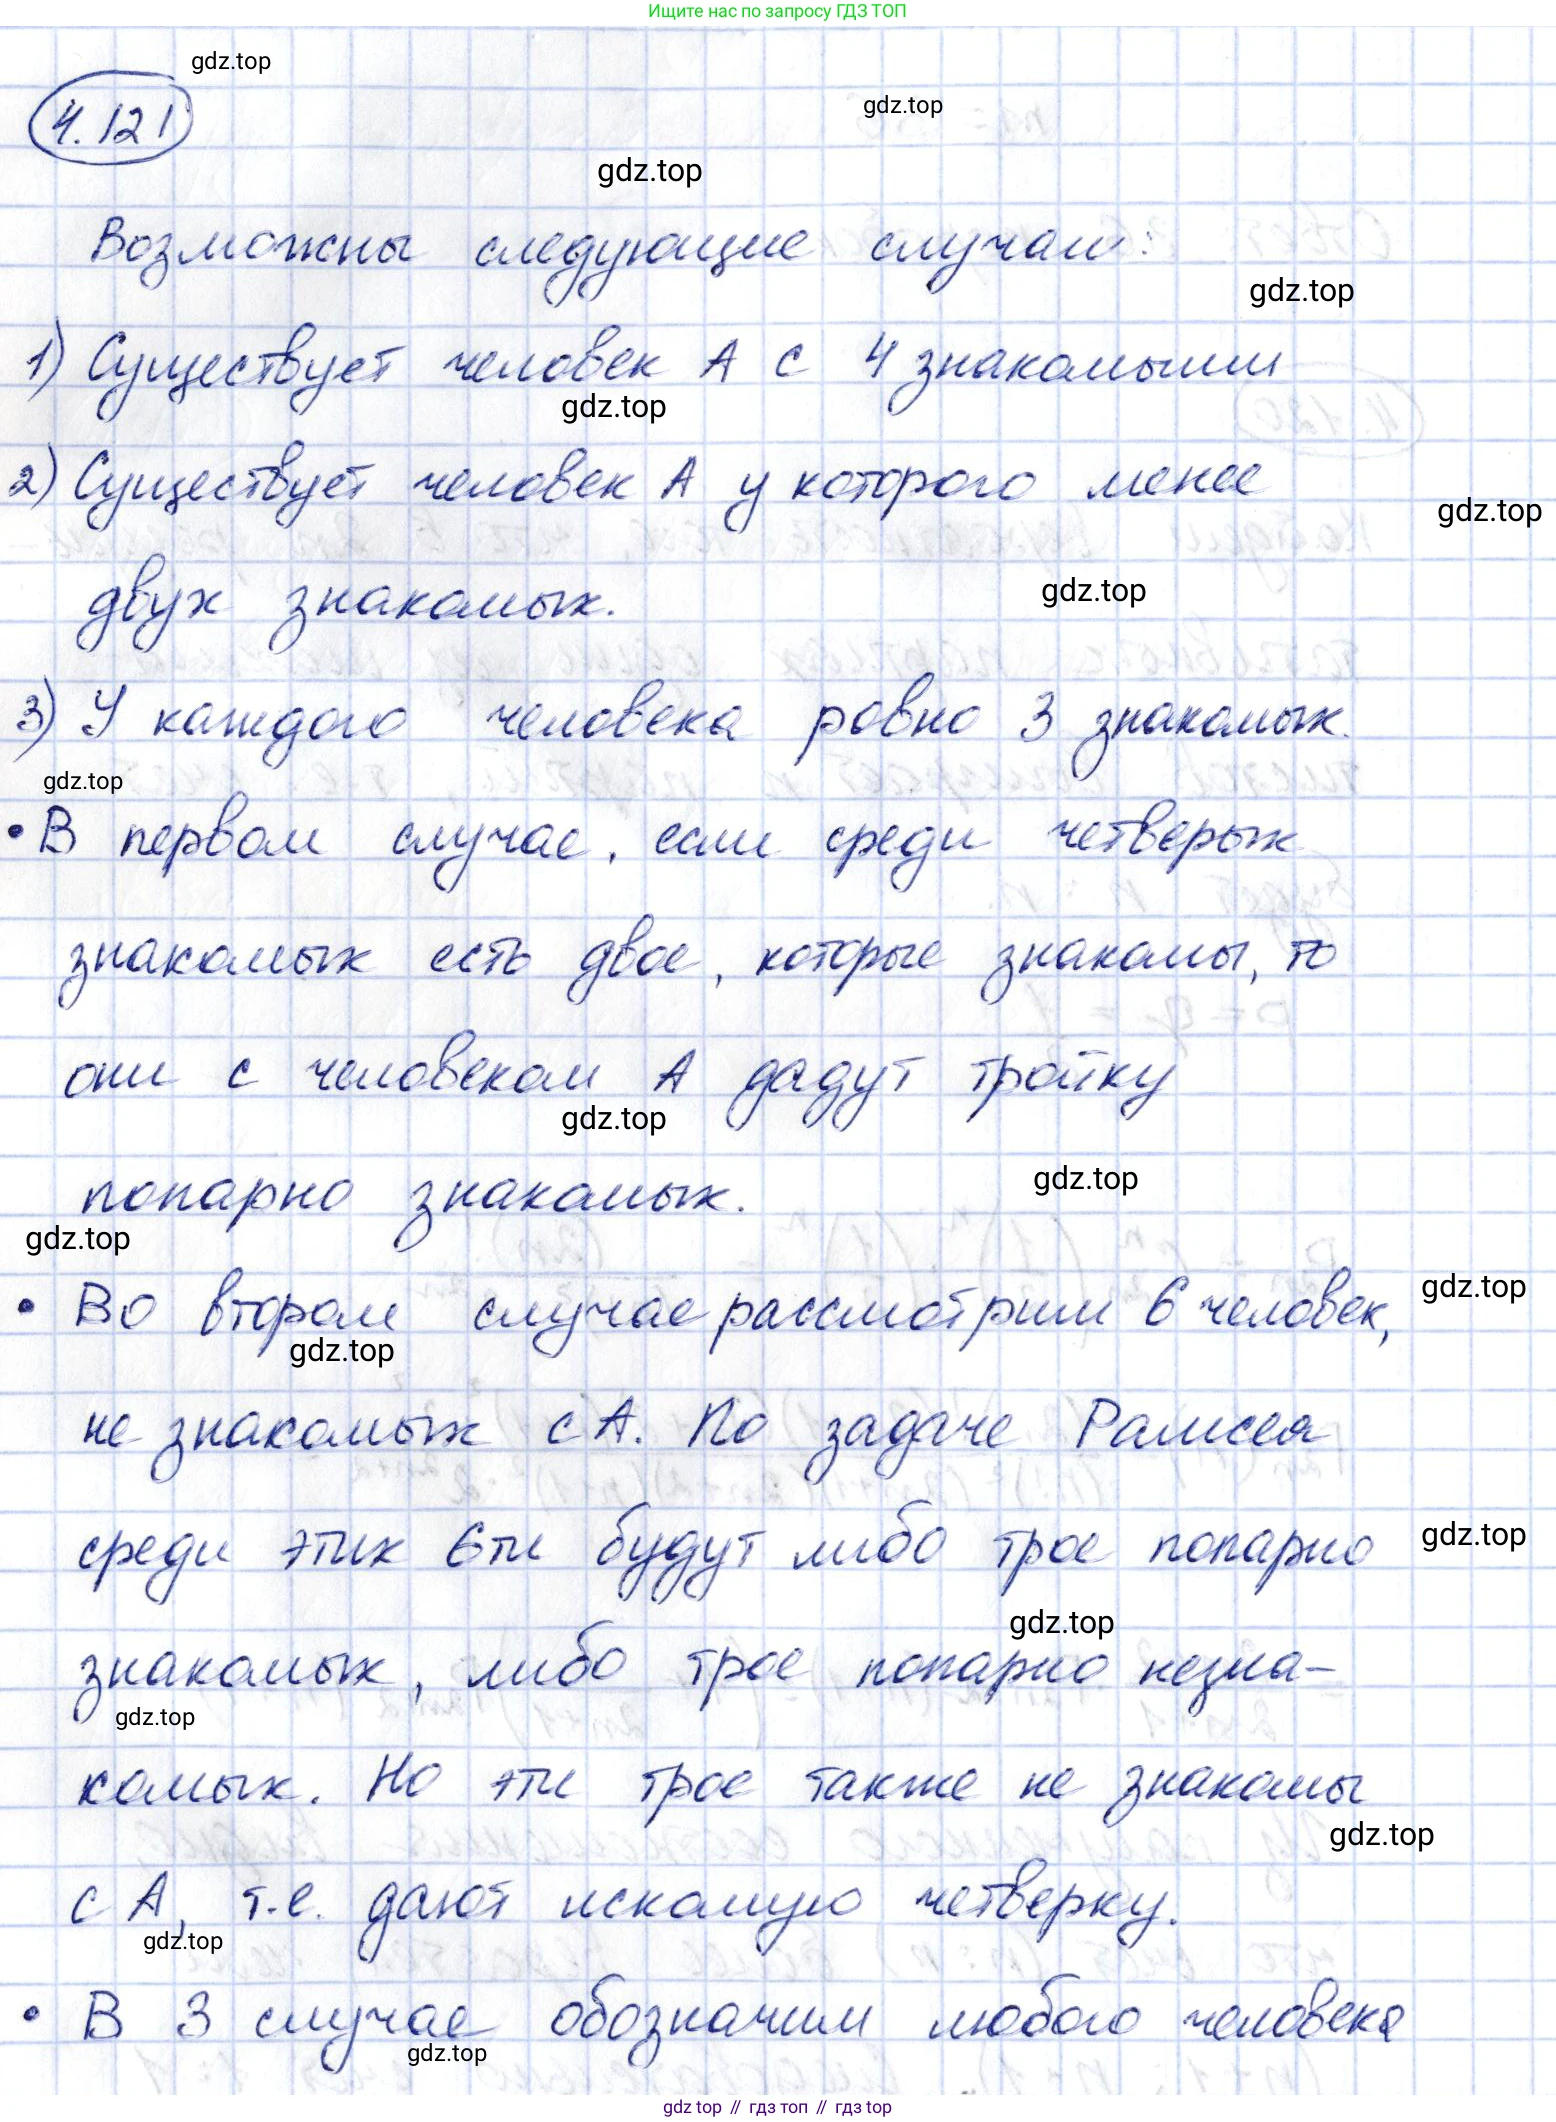 Ищите нас по запросу ГДЗ ТОП
gdz.top
4.121
gdz.top
gdz.top
Возможны следующие случаи:
gdz.top
1) Существует человек А с 4 знакомыми
gdz.top
2) Существует человек А у которого менее
gdz.top
двух знакомых.
gdz.top
3) У каждого человека ровно 3 знакомых.
gdz.top
• В первом случае, если среди четверых
знакомых есть двое, которые знакомы, то
они с человеком А дадут тройку
gdz.top
попарно знакомых.
gdz.top
gdz.top
• Во втором случае рассмотрим 6 человек,
gdz.top
gdz.top
не знакомых с А. По задаче Рамсея
среди этих 6ти будут либо трое попарно
gdz.top
знакомых, либо трое попарно незна-
gdz.top
gdz.top
комых. Но эти трое также не знакомы
gdz.top
с А, т.е. дают искомую четверку.
gdz.top
• В 3 случае обозначим любого человека
gdz.top
gdz.top // гдз топ // гдз top